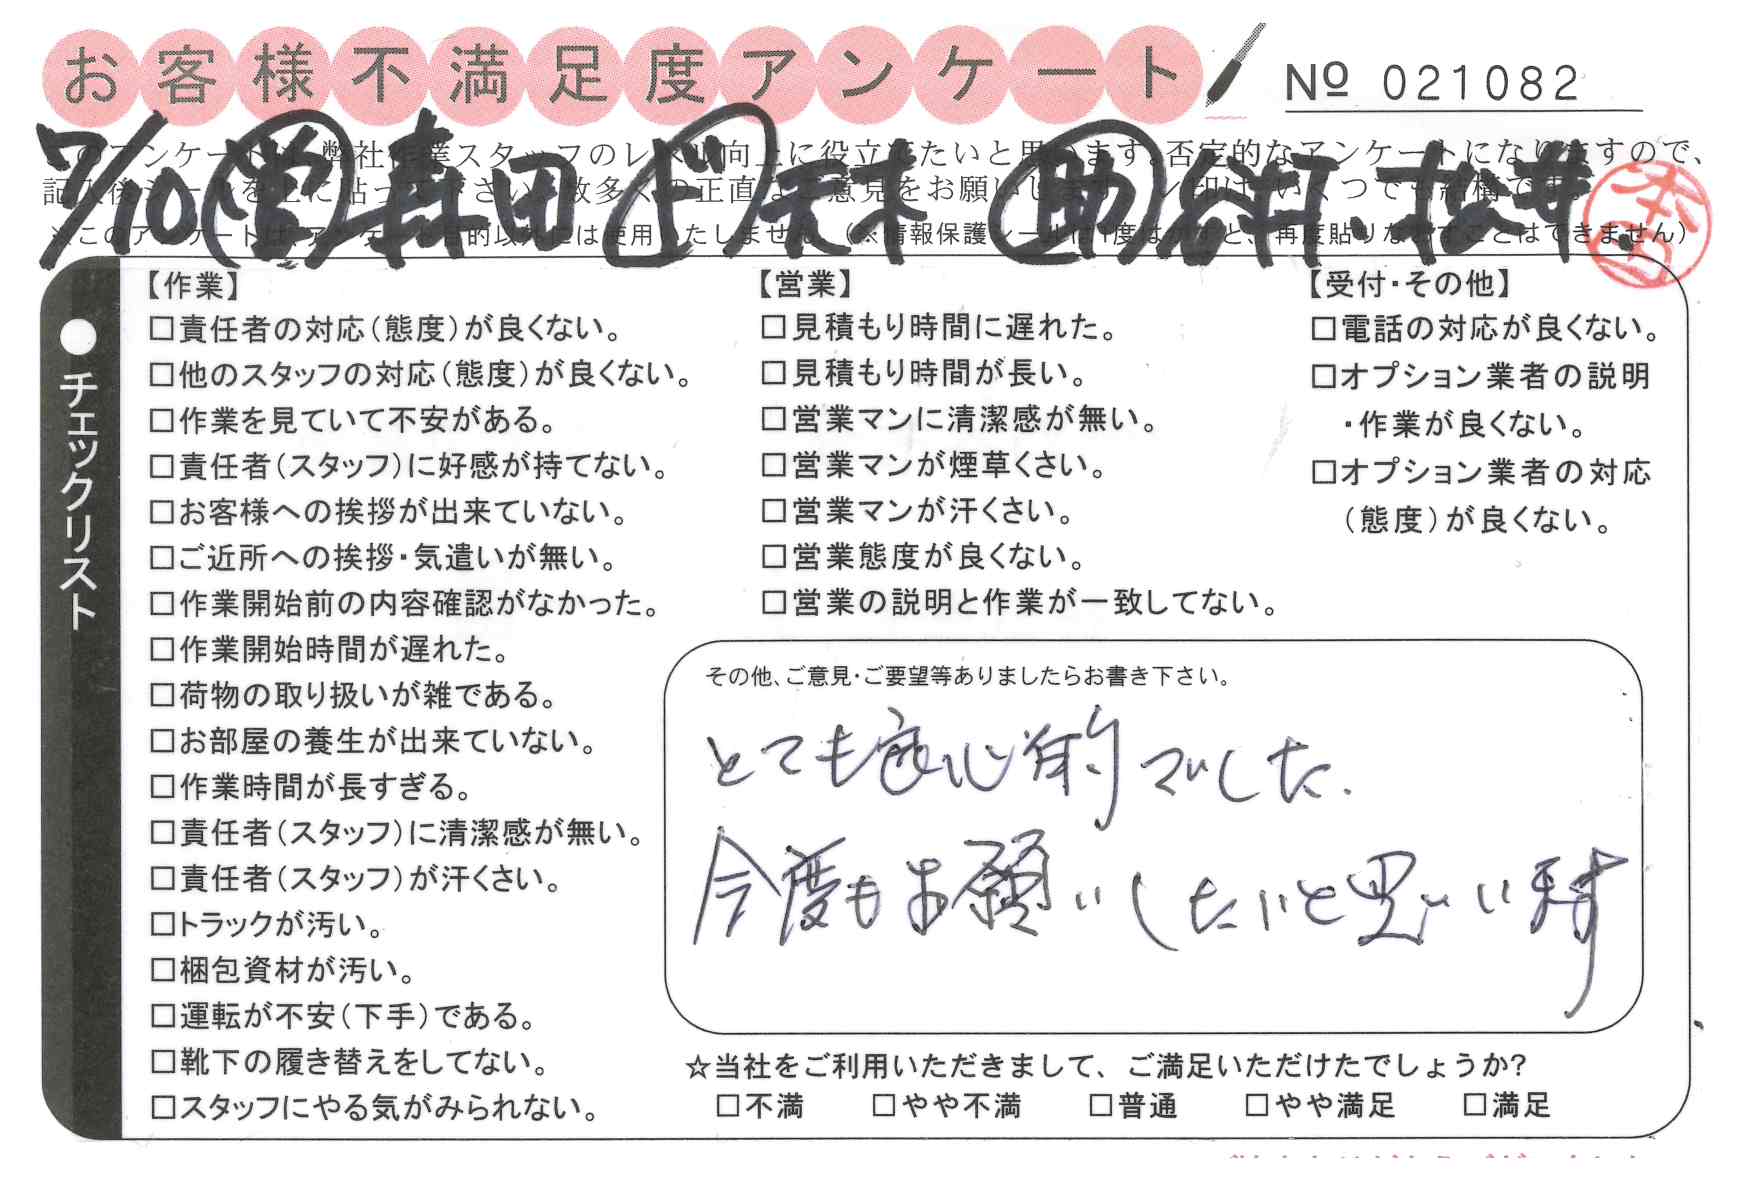 お客様不満足度アンケート
№ 021082
このアンケートは、弊社作業スタッフのレベル向上に役立てたいと思います。否定的なアンケートになりますので、
記入後シールを上に貼って下さい。数多くの正直なご意見をお願いします。
※このアンケートは、アンケート目的以外には使用いたしません。(※情報保護シールは1度はがすと、再度貼りなおすことはできません)
7/10 営 森田 ド 天木 助
本
チェックリスト
【作業】
□責任者の対応(態度)が良くない。
□他のスタッフの対応(態度)が良くない。
□作業を見ていて不安がある。
□責任者(スタッフ)に好感が持てない。
□お客様への挨拶が出来ていない。
□ご近所への挨拶・気遣いが無い。
□作業開始前の内容確認がなかった。
□作業開始時間が遅れた。
□荷物の取り扱いが雑である。
□お部屋の養生が出来ていない。
□作業時間が長すぎる。
□責任者(スタッフ)に清潔感が無い。
□責任者(スタッフ)が汗くさい。
□トラックが汚い。
□梱包資材が汚い。
□運転が不安(下手)である。
□靴下の履き替えをしてない。
□スタッフにやる気がみられない。
【営業】
□見積もり時間に遅れた。
□見積もり時間が長い。
□営業マンに清潔感が無い。
□営業マンが煙草くさい。
□営業マンが汗くさい。
□営業態度が良くない。
□営業の説明と作業が一致してない。
【受付・その他】
□電話の対応が良くない。
□オプション業者の説明
・作業が良くない。
□オプション業者の対応
(態度)が良くない。
その他、ご意見・ご要望等ありましたらお書き下さい。
とても良心的でした.
今度もお願いしたいと思います
☆当社をご利用いただきまして、ご満足いただけたでしょうか?
□不満 □やや不満 □普通 □やや満足 □満足